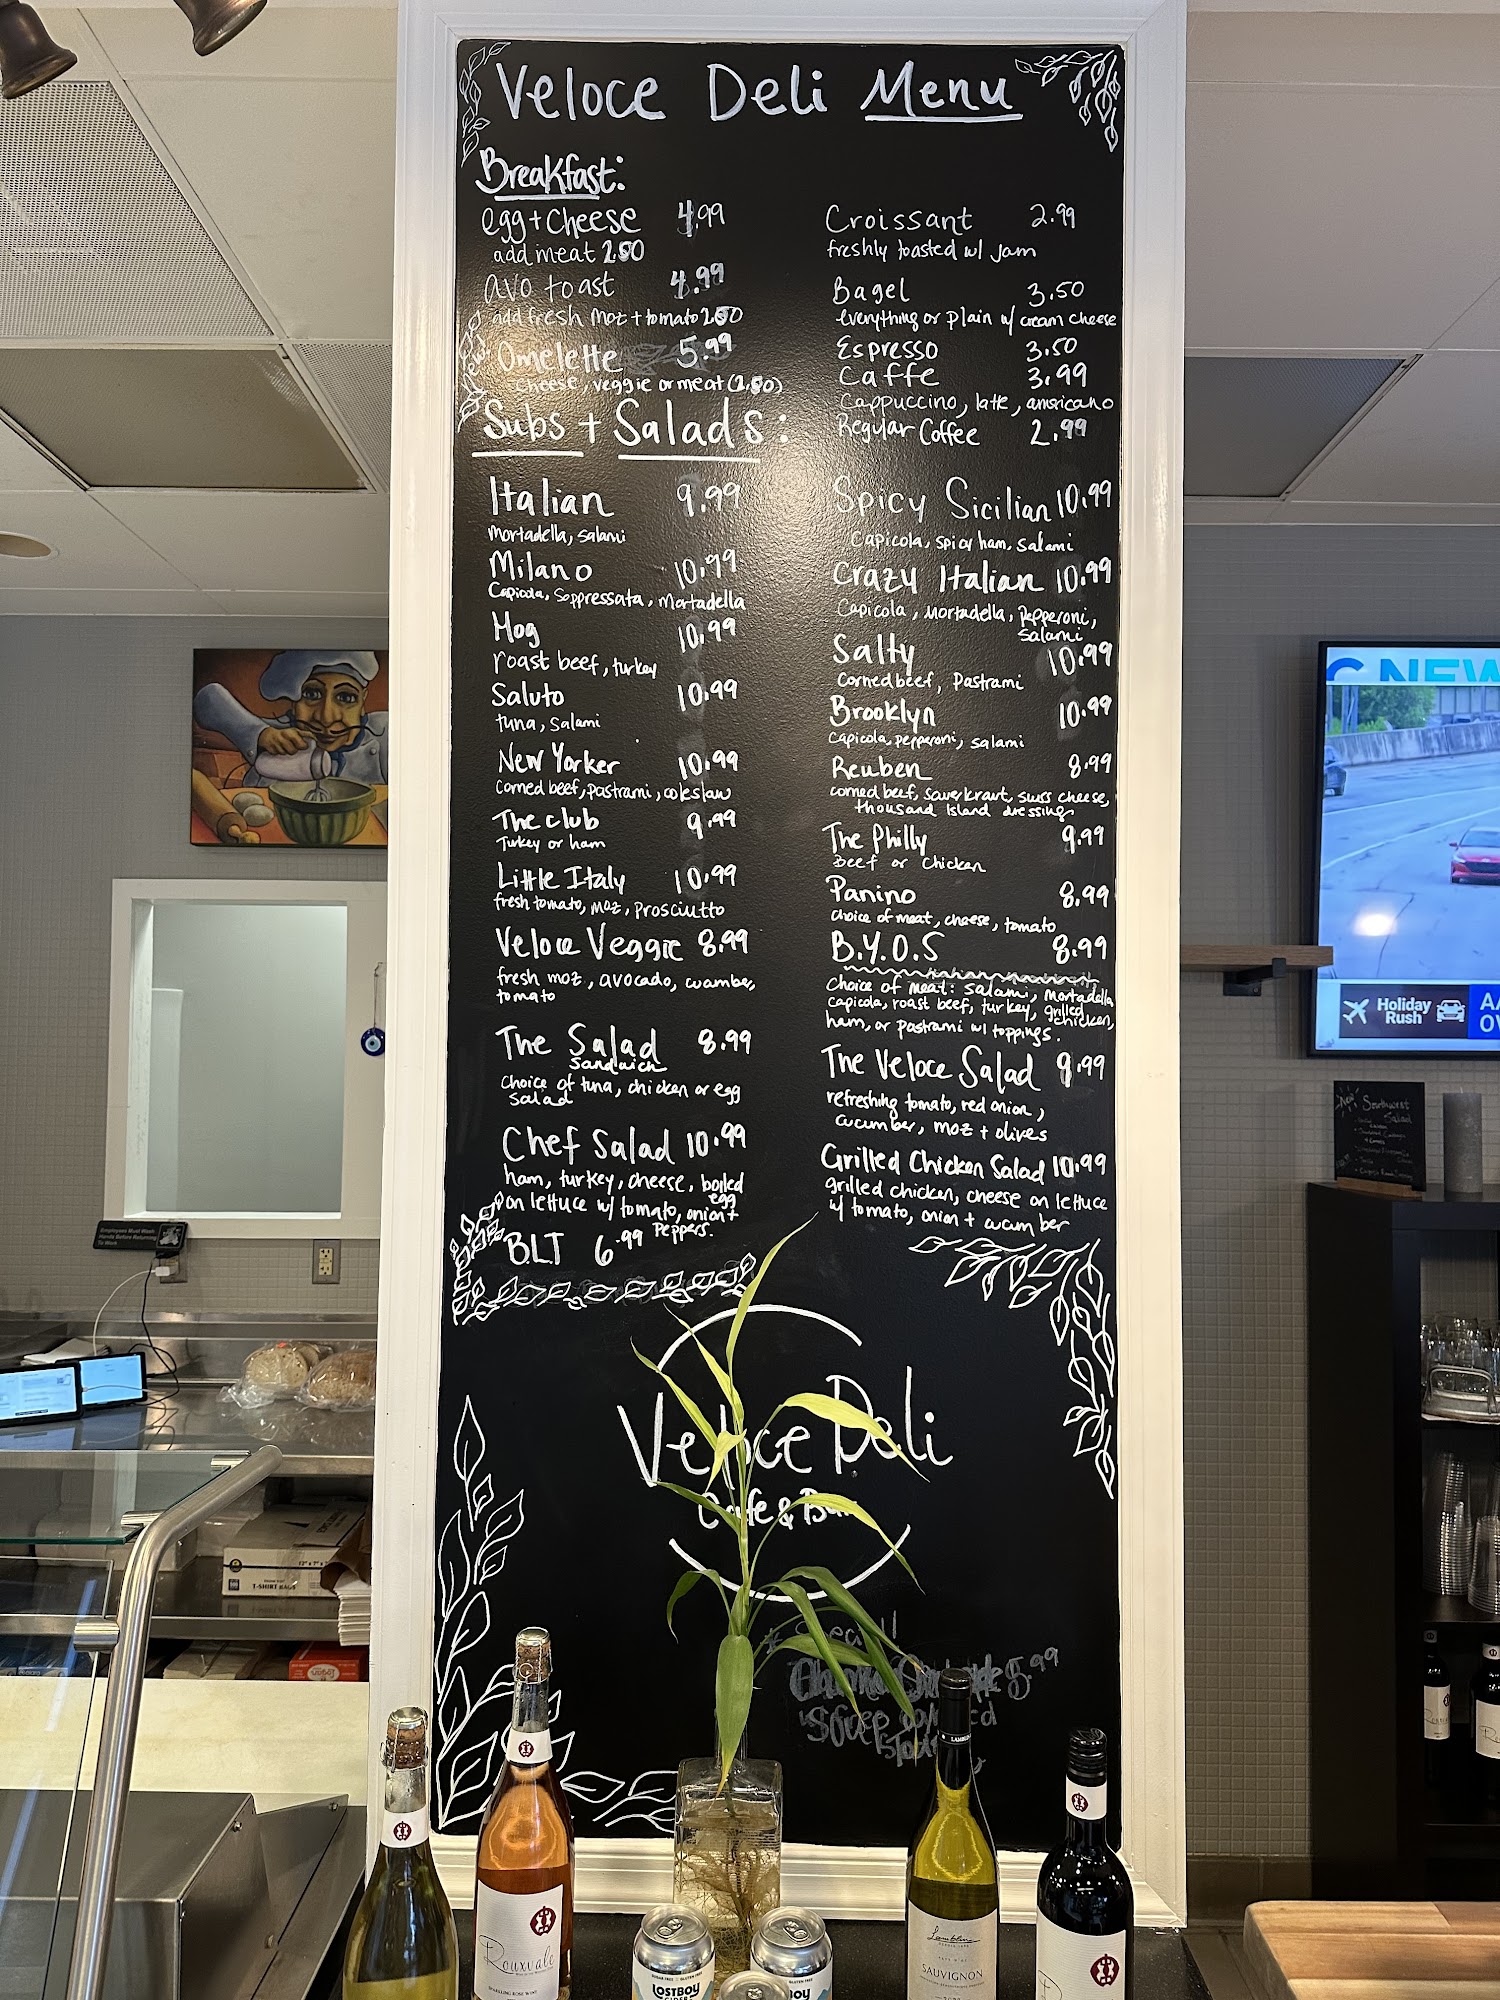 Veloce Deli Menu
Breakfast:
egg + cheese 4.99
add meat 2.50
avo toast 4.99
add fresh moz + tomato 2.50
Omelette 5.99
cheese, veggie or meat (2.50)
Croissant 2.99
freshly toasted w/ jam
Bagel 3.50
everything or plain w/ cream cheese
Espresso 3.50
Caffe 3.99
Cappuccino, latte, americano
Regular Coffee 2.99
Subs + Salads:
Italian 9.99
mortadella, salami
Milano 10.99
Capicola, Soppressata, Mortadella
Hog 10.99
roast beef, turkey
Saluto 10.99
tuna, salami
New Yorker 10.99
Corned beef, pastrami, coleslaw
The club 9.99
Turkey or ham
Little Italy 10.99
fresh tomato, moz, prosciutto
Veloce Veggie 8.99
fresh moz, avocado, cucumber,
tomato
The Salad 8.99
Sandwich
choice of tuna, chicken or egg
salad
Chef Salad 10.99
ham, turkey, cheese, boiled
egg
on lettuce w/ tomato, onion +
peppers.
B.L.T 6.99
Spicy Sicilian 10.99
Capicola, spicy ham, salami
Crazy Italian 10.99
Capicola, Mortadella, Pepperoni,
Salami
Salty 10.99
Corned beef, Pastrami
Brooklyn 10.99
Capicola, pepperoni, salami
Reuben 8.99
corned beef, sauerkraut, swiss cheese,
thousand island dressing
The Philly 9.99
Beef or Chicken
Panino 8.99
choice of meat, cheese, tomato
B.Y.O.S 8.99
choice of meat: salami, mortadella
capicola, roast beef, turkey, grilled
chicken,
ham, or pastrami w/ toppings.
The Veloce Salad 9.99
refreshing tomato, red onion,
cucumber, moz + olives
Grilled Chicken Salad 10.99
grilled chicken, cheese on lettuce
w/ tomato, onion + cucumber
Veloce Deli
Cafe & Bar
Special!
C NEW
Holiday
Rush
New
Southwest
Salad
Employees Must Wash
Hands Before Returning
To Work
T-SHIRT BAGS
Rouxvale
SAUVIGNON
LOSTBOY
CIDER